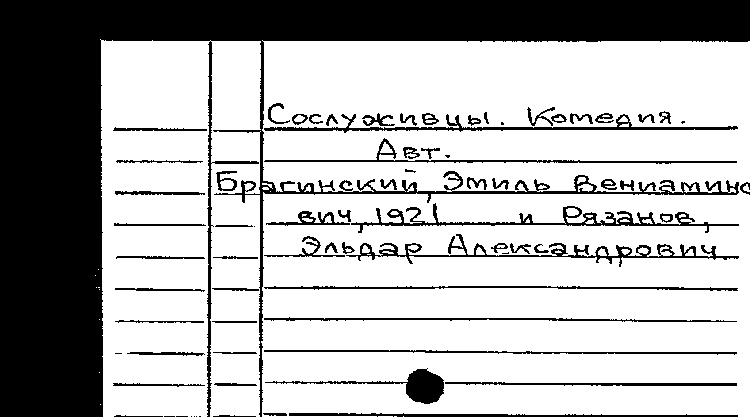 Сослуживцы. Комедия.
Авт.
Брагинский, Эмиль Вениамино
вич, 1921 и Рязанов,
Эльдар Александрович